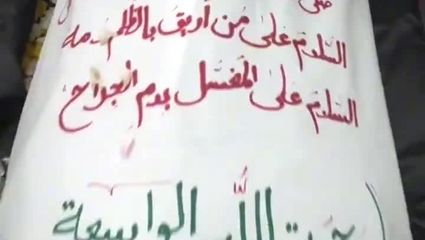 على
السلام على من أريق بالظلم دمه
السلام على المغسل بدم الجراح
رحمة الله الواسعة